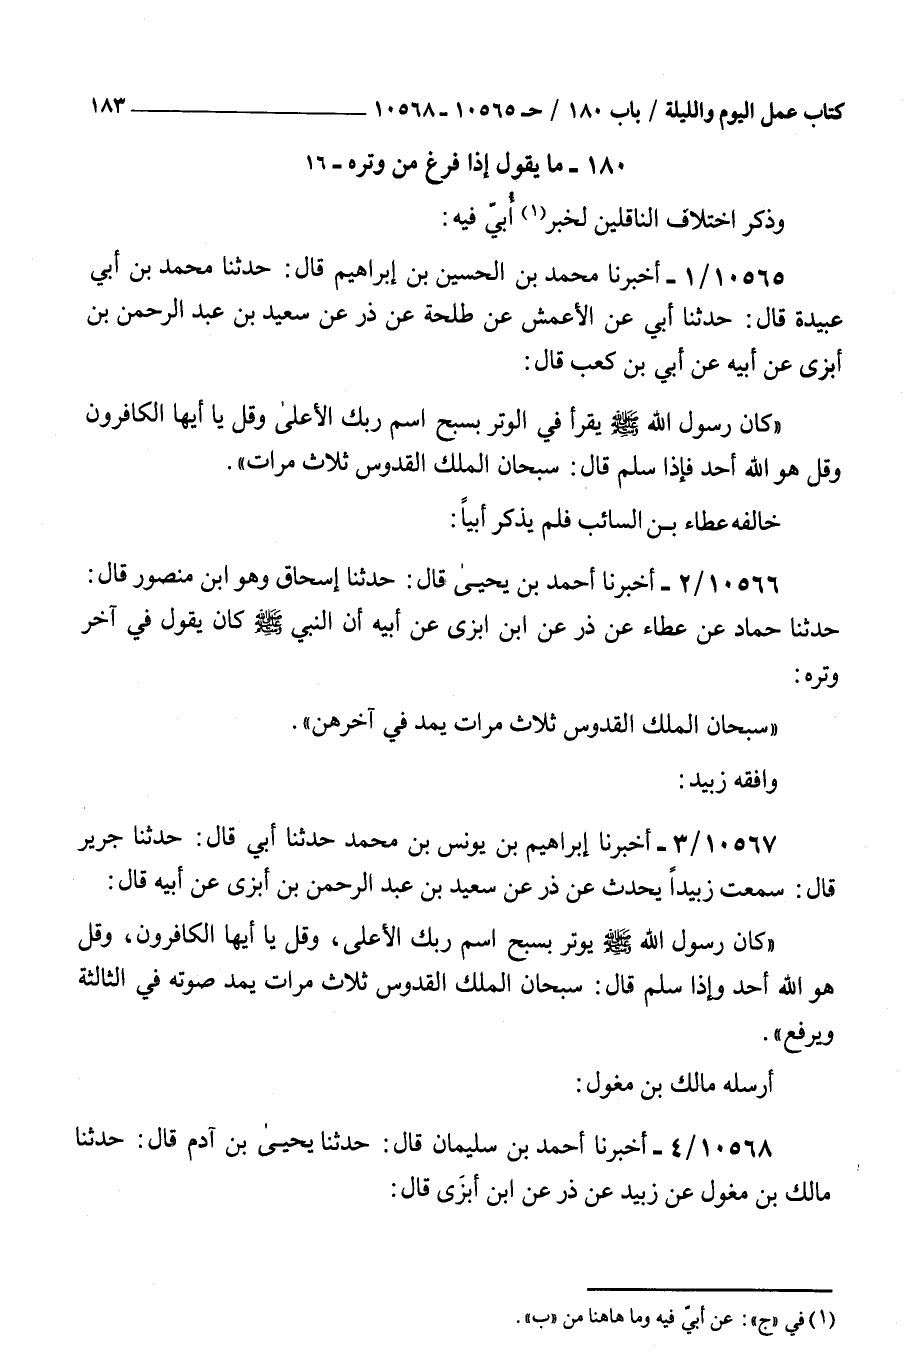 كتاب عمل اليوم والليلة / باب ١٨٠ / حـ ١٠٥٦٥ ـ ١٠٥٦٨ ١٨٣
١٨٠ ـ ما يقول إذا فرغ من وتره ـ ١٦
وذكر اختلاف الناقلين لخبر(١) أُبيّ فيه:
١/١٠٥٦٥ ـ أخبرنا محمد بن الحسين بن إبراهيم قال: حدثنا محمد بن أبي
عبيدة قال: حدثنا أبي عن الأعمش عن طلحة عن ذر عن سعيد بن عبد الرحمن بن
أبزى عن أبيه عن أبي بن كعب قال:
«كان رسول الله ﷺ يقرأ في الوتر بسبح اسم ربك الأعلىٰ وقل يا أيها الكافرون
وقل هو الله أحد فإذا سلم قال: سبحان الملك القدوس ثلاث مرات».
خالفه عطاء بـن السائب فلم يذكر أبياً:
٢/١٠٥٦٦ ـ أخبرنا أحمد بن يحيـىٰ قال: حدثنا إسحاق وهو ابن منصور قال:
حدثنا حماد عن عطاء عن ذر عن ابن ابزى عن أبيه أن النبي ﷺ كان يقول في آخر
وتره:
«سبحان الملك القدوس ثلاث مرات يمد في آخرهن».
وافقه زبيد:
٣/١٠٥٦٧ ـ أخبرنا إبراهيم بن يونس بن محمد حدثنا أبي قال: حدثنا جرير
قال: سمعت زبيداً يحدث عن ذر عن سعيد بن عبد الرحمن بن أبزى عن أبيه قال:
«كان رسول الله ﷺ يوتر بسبح اسم ربك الأعلى، وقل يا أيها الكافرون، وقل
هو الله أحد وإذا سلم قال: سبحان الملك القدوس ثلاث مرات يمد صوته في الثالثة
ويرفع».
أرسله مالك بن مغول:
٤/١٠٥٦٨ ـ أخبرنا أحمد بن سليمان قال: حدثنا يحيـىٰ بن آدم قال: حدثنا
مالك بن مغول عن زبيد عن ذر عن ابن أبزَى قال:
(١) في «ج»: عن أبيّ فيه وما هاهنا من «ب».